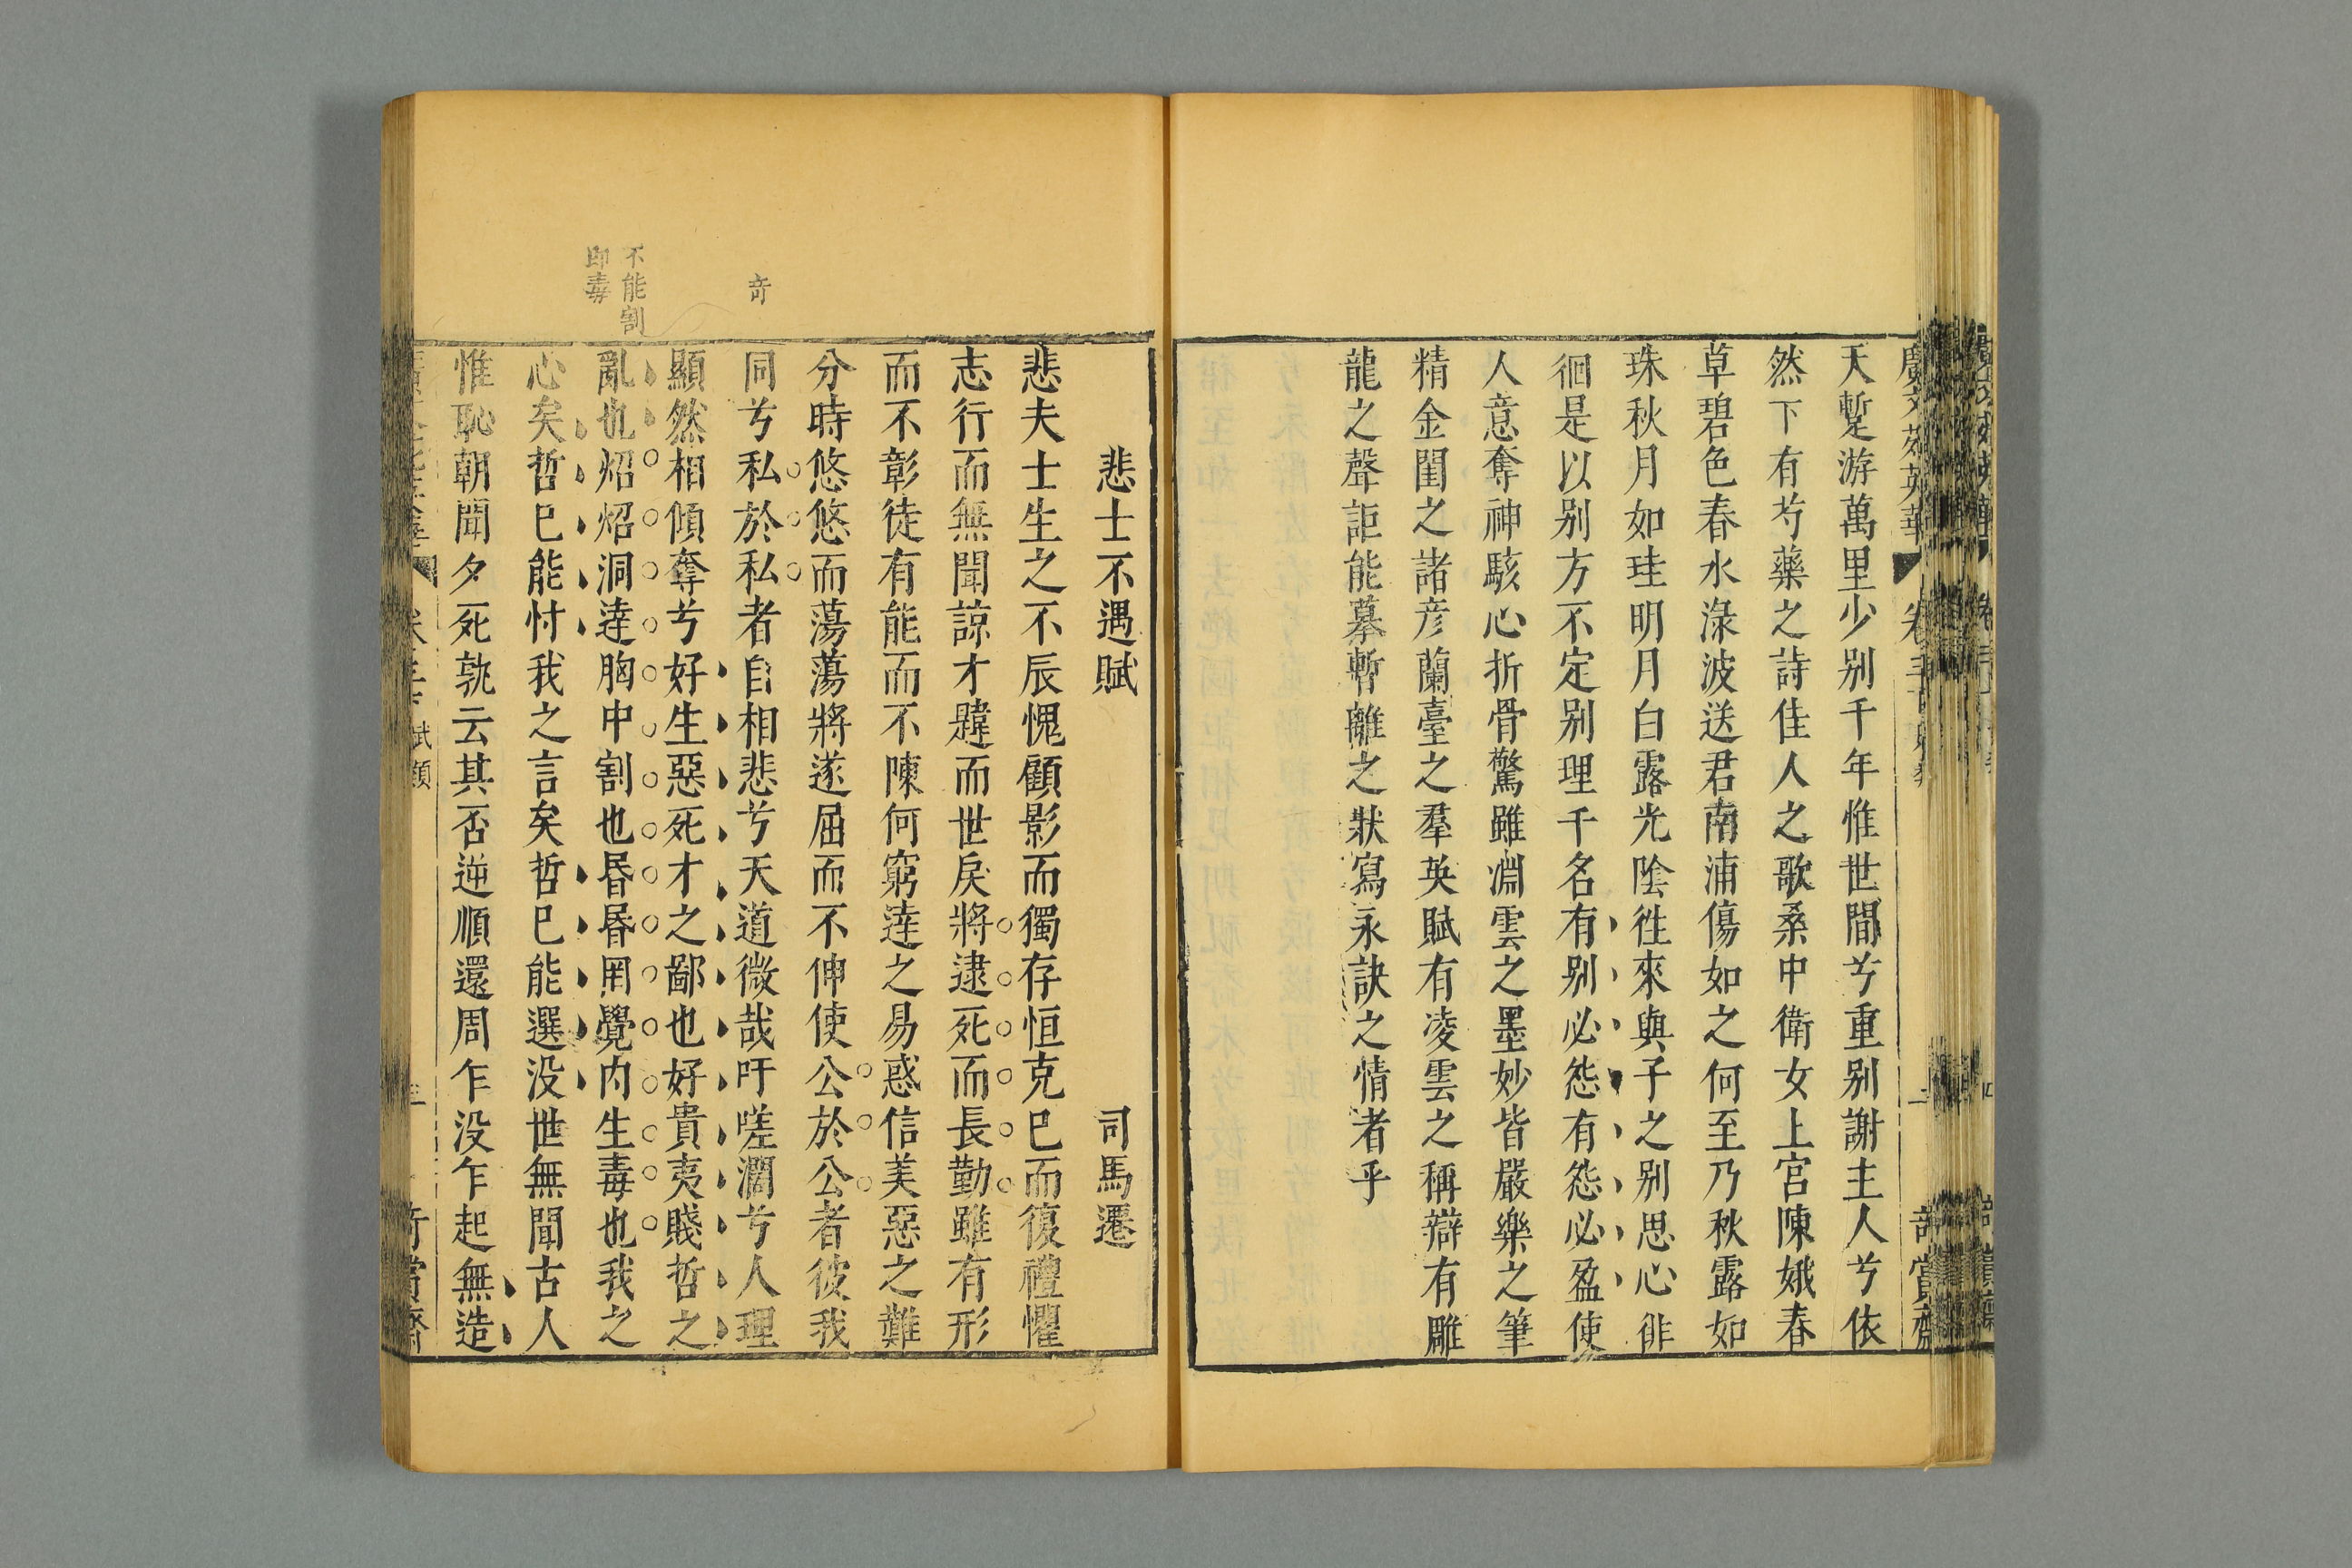 天暫游萬里少别千年惟世間兮重别謝主人兮依
然下有芍藥之詩佳人之歌桑中衛女上宮陳娥春
草碧色春水淥波送君南浦傷如之何至乃秋露如
珠秋月如珪明月白露光陰徃來與子之别思心徘
徊是以别方不定别理千名有别必怨有怨必盈使
人意奪神駭心折骨驚雖淵雲之墨妙皆嚴樂之筆
精金閨之諸彦蘭臺之羣英賦有凌雲之稱辯有雕
龍之聲詎能摹暫離之狀寫永訣之情者乎
悲士不遇賦 司馬遷
悲夫士生之不辰愧顧影而獨存恒克已而復禮懼
志行而無聞諒才韙而世戾將逮死而長勤雖有形
而不彰徒有能而不陳何窮逹之易惑信美惡之難
分時悠悠而蕩蕩將遂屈而不伸使公於公者彼我
同兮私於私者自相悲兮天道微哉吁嗟濶兮人理
顯然相傾奪兮好生惡死才之鄙也好貴夷賤哲之
亂也炤炤洞逹胸中割也昬昬罔覺内生毒也我之
心矣哲已能忖我之言矣哲已能選没世無聞古人
惟恥朝聞夕死孰云其否逆順還周乍没乍起無造
竒
不能割
即毒
廣文苑英華 卷三
賞齋